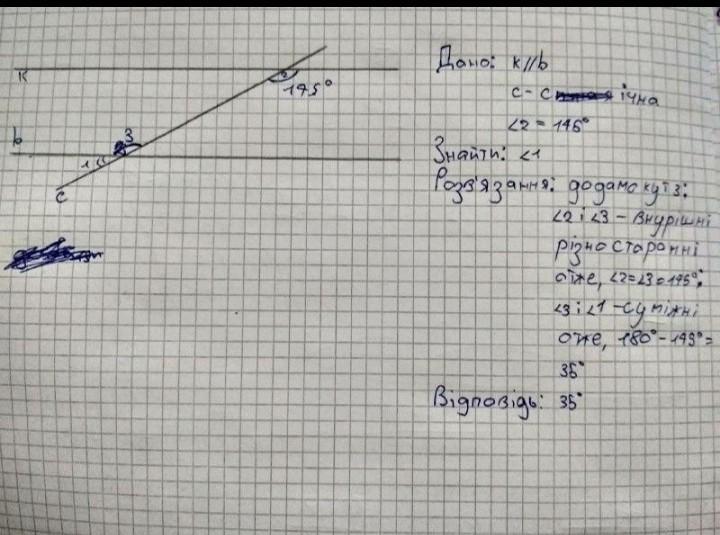 Дано: k//b
c - с ічна
∠2 = 145°
Знайти: ∠1
Розв'язання: додамо кут 3:
∠2 і ∠3 - внурішні
різносторонні
отже, ∠2=∠3=145°.
∠3 і ∠1 - суміжні
отже, 180° - 145° =
35°
Відповідь: 35°
k
145°
b
3
1
c